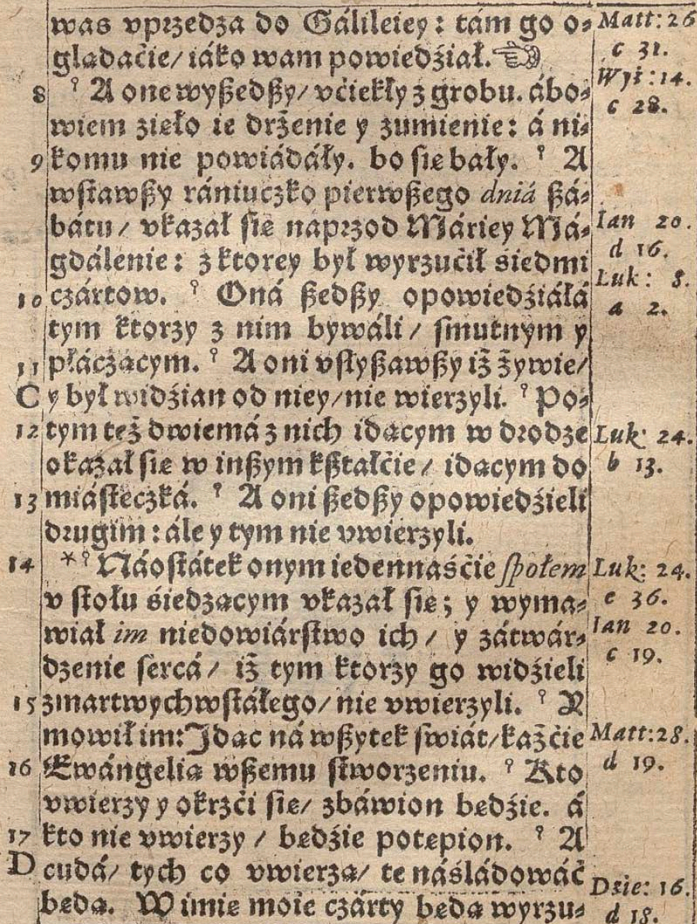 was vprzedza do Gálileiey: tám go o⸗ Matt: 26
glądaćie/ iáko wam powiedźiał. ☜ c 31.
Wyż: 14.
8 ⁹ A one wyßedßy/ vćiekły z grobu. ábo⸗
c 28.
wiem zięło ie drżenie y zumienie: á ni⸗
9 komu nie powiádáły. bo się bały. ⁹ A
wstawßy rániuczko pierwßego dniá ßá⸗
bátu/ vkazał się naprzod Máriey Má⸗ Ian 20.
d 16.
gdálenie: z ktorey był wyrzućił siedmi Luk: 8.
10 czártow. ⁹ Oná ßedßy opowiedźiáłá a 2.
tym ktorzy z nim bywáli/ smutnym y
11 płáczącym. ⁹ A oni vsłyßawßy iż żywie/
C y był widźian od niey/ nie wierzyli. ⁹ Po⸗
12 tym też dwiemá z nich idącym w drodze Luk: 24.
okazał się w inßym kßtałćie/ idącym do b 13.
13 miásteczká. ⁹ A oni ßedßy opowiedźieli
drugim: ále y tym nie vwierzyli.
14 *⁹ Náostátek onym iedennaśćie społem Luk: 24.
v stołu śiedzącym vkazał się; y wyma⸗ e 36.
wiał im niedowiárstwo ich/ y zátwár⸗ Ian 20.
dzenie sercá/ iż tym ktorzy go widźieli c 19.
15 zmartwychwstáłego/ nie vwierzyli. ⁹ Y
mowił im: Idąc ná wßytek świát/ każćie Matt: 28.
16 Ewángelią wßemu stworzeniu. ⁹ Kto d 19.
vwierzy y okrzći się/ zbáwion będźie. á
17 kto nie vwierzy/ będźie potępion. ⁹ A
D cudá/ tych co vwierzą/ te náśládowáć Dzie: 16.
będą. W imię moie czárty będą wyrzu⸗ d 18.